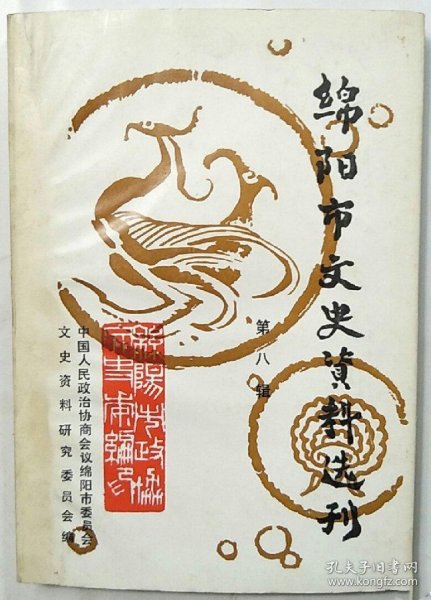 绵阳市文史資料选刊
第八辑
中国人民政治协商会议绵阳市委员会
文史资料研究委员会编
孔夫子旧书网
www.kongfz.com